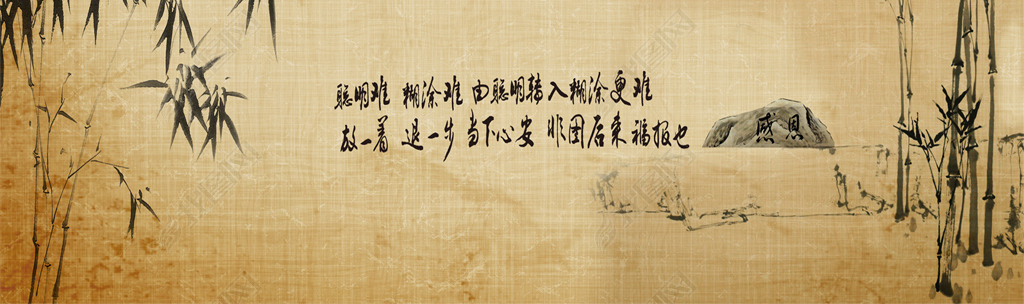 聪明难 糊涂难 由聪明转入糊涂更难
放一着 退一步 当下心安 非图后来福报也
感恩